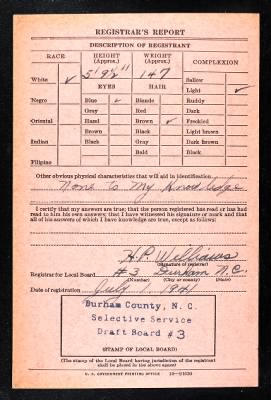 REGISTRAR'S REPORT
DESCRIPTION OF REGISTRANT
RACE HEIGHT (Approx.) WEIGHT (Approx.) COMPLEXION
White ✓ 5' 9½" 147 Sallow
Light ✓
EYES HAIR
Negro Blue ✓ Blonde Ruddy
Gray Red Dark
Oriental Hazel Brown ✓ Freckled
Brown Black Light brown
Indian Black Gray Dark brown
Bald Black
Filipino
Other obvious physical characteristics that will aid in identification
None to my Knowledge
I certify that my answers are true; that the person registered has read or has had
read to him his own answers; that I have witnessed his signature or mark and that
all of his answers of which I have knowledge are true, except as follows:
H.P. Williams
(Signature of registrar)
Registrar for Local Board #3 Durham N.C.
(Number) (City or county) (State)
Date of registration July 1, 1941
Durham County, N. C.
Selective Service
Draft Board #3
(STAMP OF LOCAL BOARD)
(The stamp of the Local Board having jurisdiction of the registrant
shall be placed in the above space)
U. S. GOVERNMENT PRINTING OFFICE